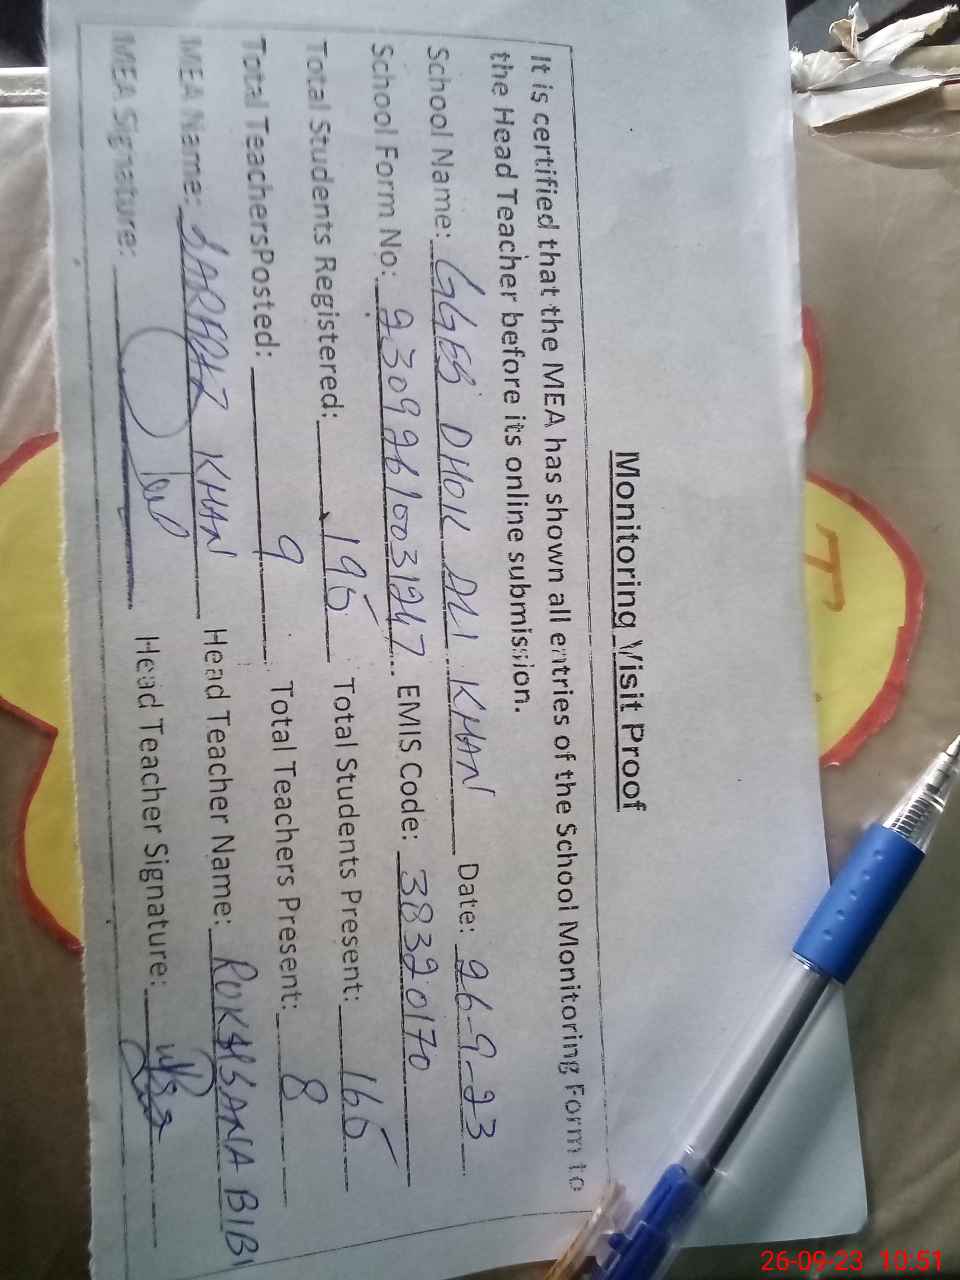 Monitoring Visit Proof
It is certified that the MEA has shown all entries of the School Monitoring Form to
the Head Teacher before its online submission.
School Name: GGES DHOK ALI KHAN Date: 26-9-23
School Form No: 23092610031247 EMIS Code: 38320170
Total Students Registered: 195 Total Students Present: 165
Total TeachersPosted: 9 Total Teachers Present: 8
MEA Name: SARFRAZ KHAN Head Teacher Name: RUKHSANA BIBI
MEA Signature: Head Teacher Signature:
26-09-23 10:51